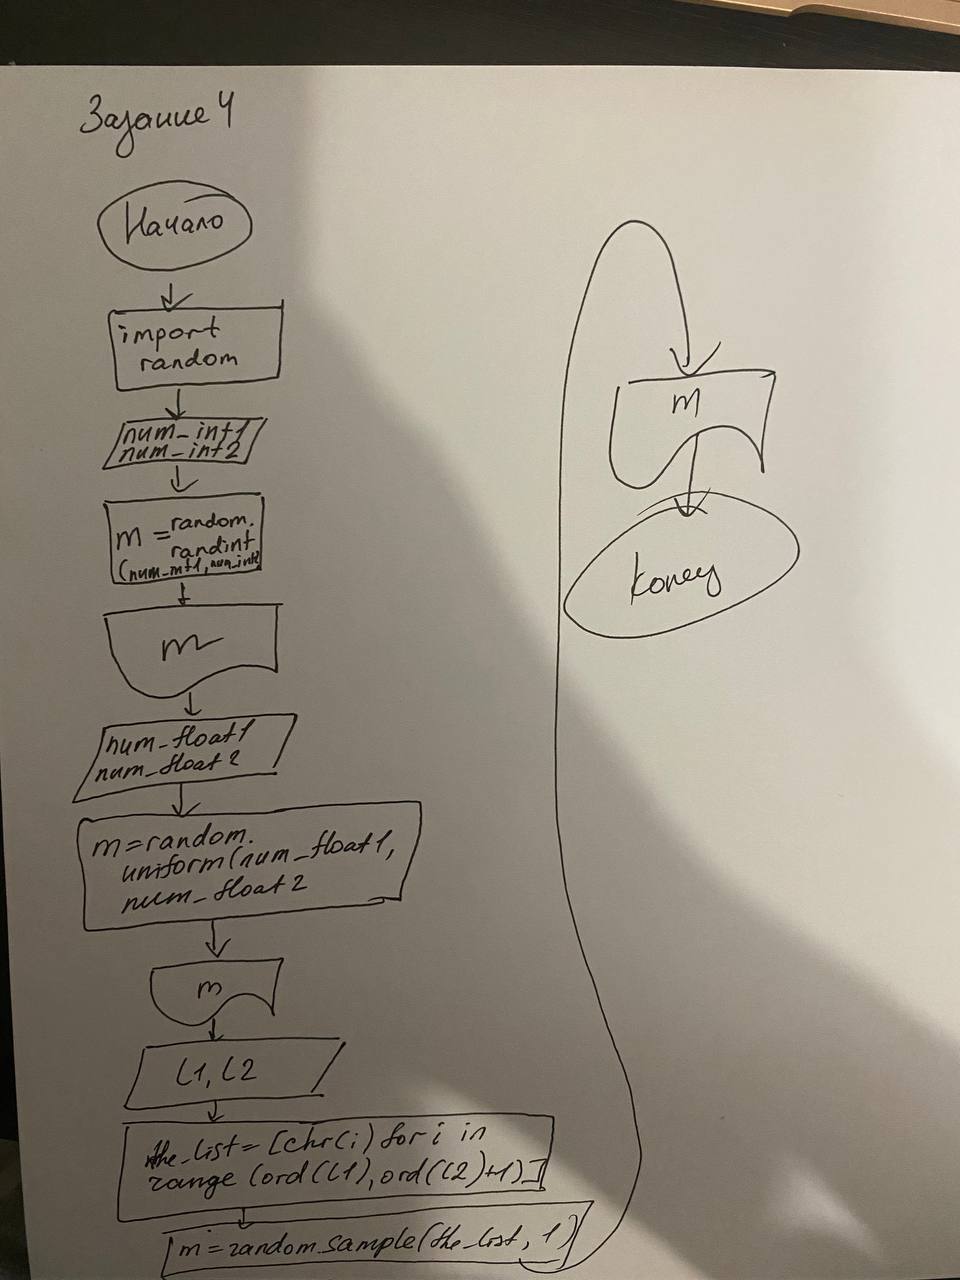 Задание 4
Начало
import
random
num_int1
num_int2
m = random.
randint
(num_int1, num_int2
m
num_float1
num_float2
m=random.
uniform(num_float1,
num_float2
m
l1, l2
the_list= [chr(i) for i in
range (ord(l1), ord(l2)+1)]
m=random.sample(the_list, 1)
m
Конец